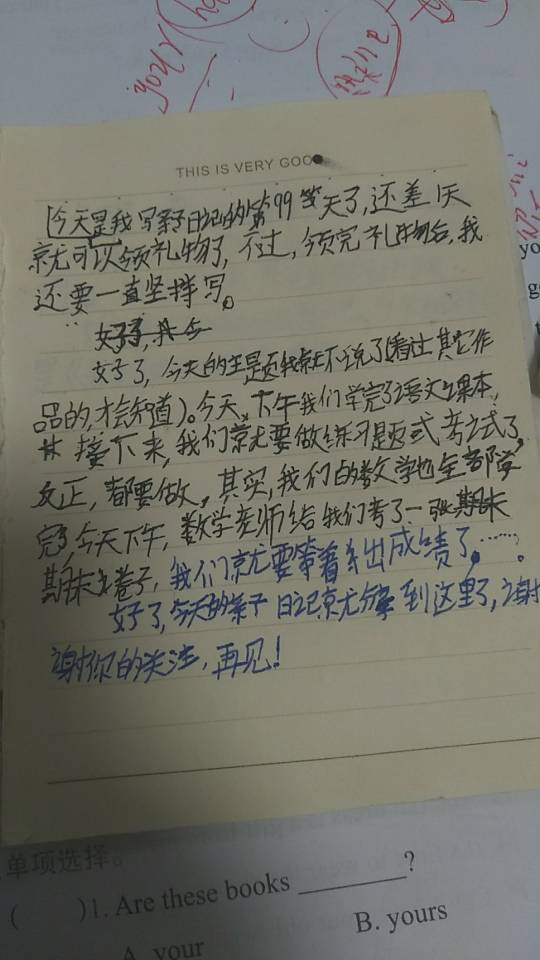 your
THIS IS VERY GOO
[今天是我写亲子日记的第99篇天了,还差1天
就可以领礼物了,不过,领完礼物后,我
还要一直坚持写。
好了,今天的主题我就不说了(看过其它作
品的,才会知道)。今天,下午我们学完了语文课本,
接下来,我们就要做练习题或考试了,
反正,都要做。其实,我们的数学也全部学
完了,今天下午,数学老师给我们考了一张期末
期末卷子,我们就要等着出成绩了。……。
好了,今天的亲子日记就分享到这里了,谢
谢你的关注,再见!
单项选择。
( )1. Are these books ________?
A. your B. yours